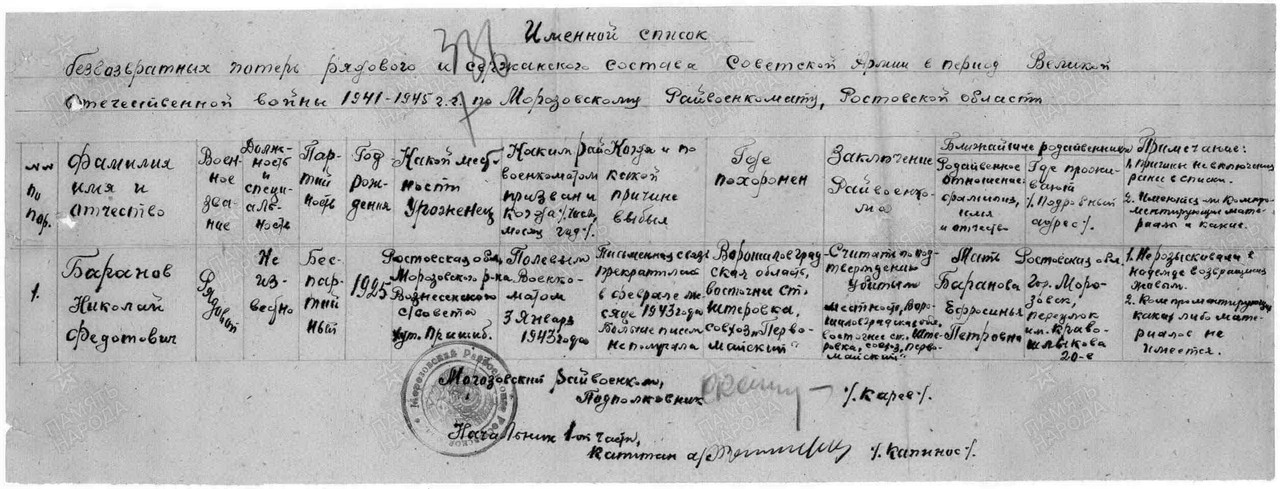 Именной список
безвозвратных потерь рядового и сержанского состава Советской Армии в период Великой
Отечественной войны 1941-1945 г.г. по Морозовскому Райвоенкомату, Ростовской области
№№
по
пор.
Фамилия
имя и
отчество
Воен-
ное
зва-
ние
Долж-
ность
и
специ-
аль-
ность
Пар-
тий-
ность
Год
рож-
дения
Какой мест-
ности
Урожене́ц
Каким рай
военкоматом
призван и
когда /число,
месяц год/.
Когда и по
какой
причине
выбыл
Где
похоронен
Заключение
Райвоенко-
ма
Ближайшие родственники
Родственное
отношение
фамилия,
имя
и отчество
Где прожи-
вают
/.Подробный
адрес/.
Примечание:
1. причины не включения
ранее в списки.
2. Имеются ли компро-
ментирующие мате-
риалы и какие.
1.
Баранов
Николай
Федотович
Рядовой
Не
из-
вестно
Бес-
пар-
тий
ный
1925
Ростовская обл.
Морозовского р-на
Вознесенского
с/совета
хут. Пришиб.
Полевым
Военко-
матом
3 Января
1943 года
Письменная связь
прекратилась
в феврале ме-
сяце 1943 года
Больше писем
не получала
Ворошиловград-
ская область,
восточнее ст.
Штеровка,
совхоз "Перво-
майский"
Считать по под-
тверждению
Убитым
местность, Воро-
шиловградская обл,
восточнее ст.Ште-
ровка, совхоз "Перво-
майский"
Мать
Баранова
Ефросинья
Петровна
Ростовская обл.
гор. Моро-
зовск,
переулок
им. Криво-
шлыкова
20-е
1. Не розыскивали в
надежде возвращения
живым.
2. Компроментирующих
каких либо мате-
риалов не
имеется.
Морозовский Райвоенком,
Подполковник /.Карев/.
Начальник 1-ой части,
Капитан а/с /.Капинос/.
ПАМЯТЬ
НАРОДА